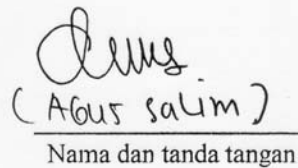 (AGUS Salim)
Nama dan tanda tangan